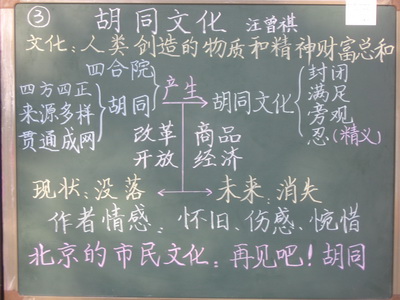 ③ 胡同文化 汪曾祺
文化：人类创造的物质和精神财富总和
四合院
四方四正
来源多样
贯通成网
胡同
产生
胡同文化
封闭
满足
旁观
忍(精义)
改革
开放
商品
经济
现状：没落
未来：消失
作者情感：怀旧、伤感、惋惜
北京的市民文化：再见吧！胡同